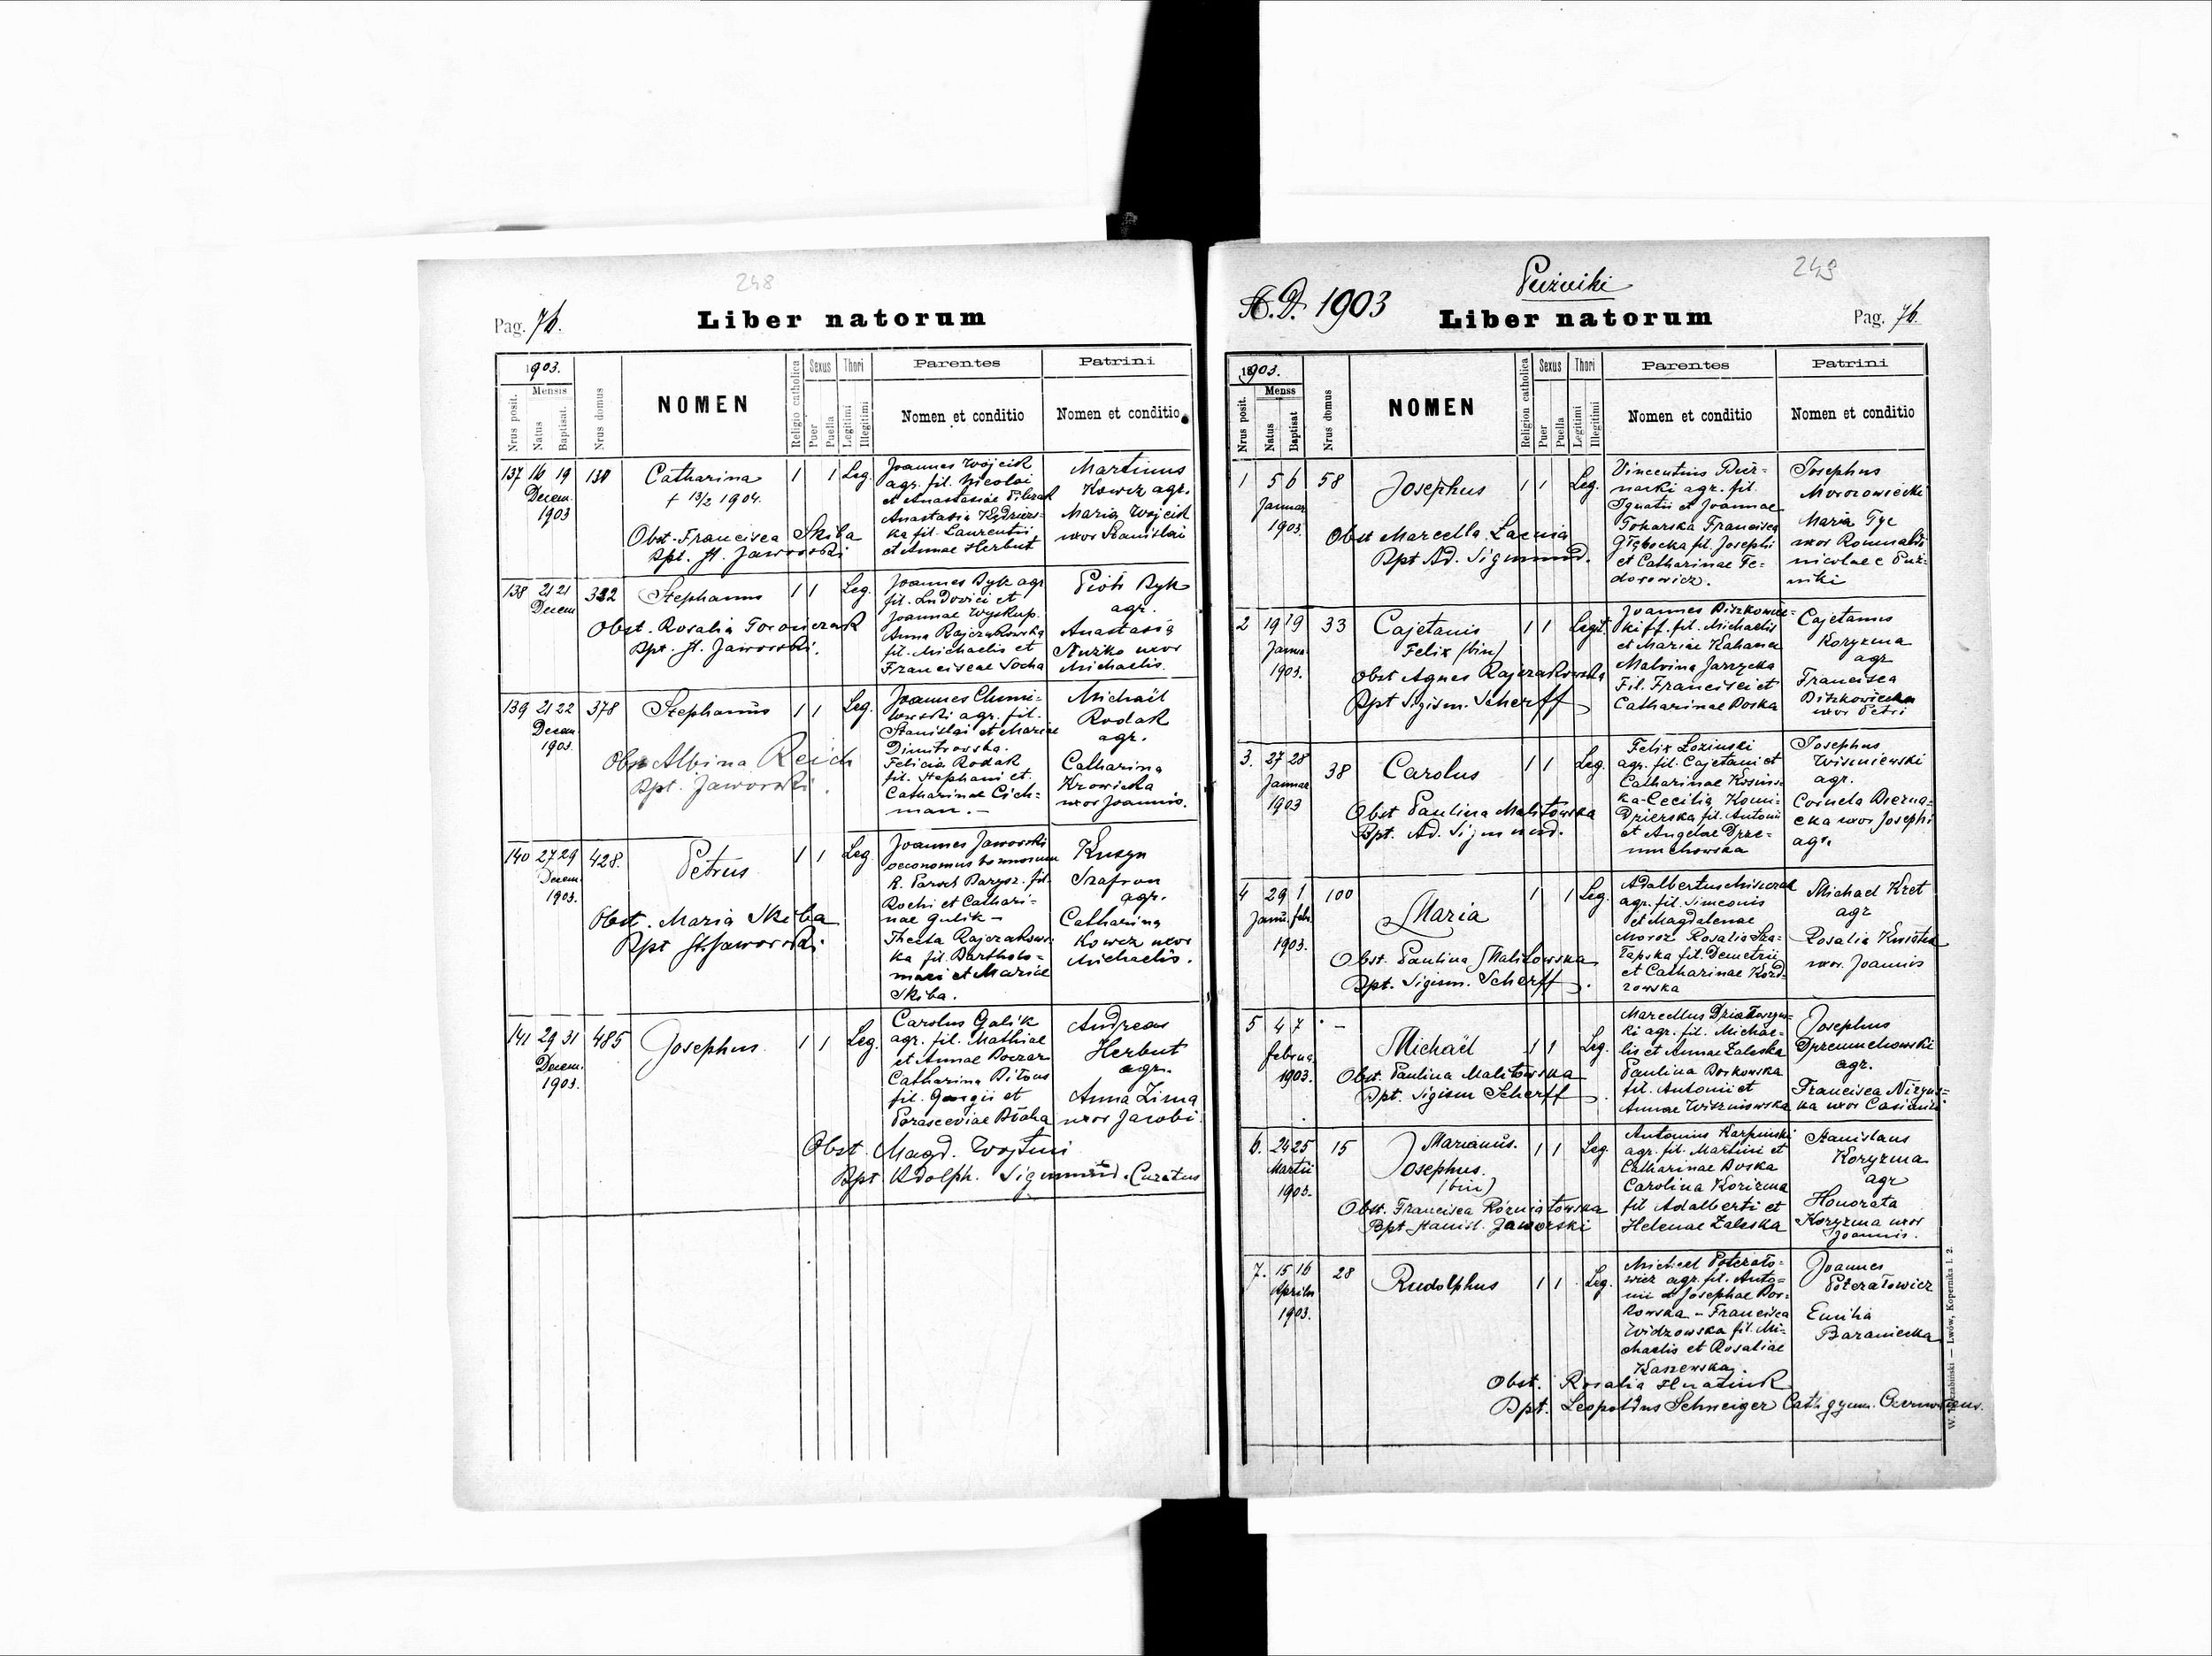 248
Pag. 76.
Liber natorum
1903.
Mensis
Nrus posit.
Natus
Baptisat.
Nrus domus
NOMEN
Religio catholica
Sexus
Puer
Puella
Thori
Legitimi
Illegitimi
Parentes
Nomen et conditio
Patrini
Nomen et conditio
137 16 19
Decem.
1903
Catharina
+ 13/2 1904.
1 1 Leg.
Obst. Francisca Skiba
Bpt. St. Jaworski
Joannes Wojcik
agr. fil. Nicolai
et Anastasiae
Anastasia Kędziers-
ka fil. Laurentii
et Annae Herbut
Martinus
Kowcz agr.
Maria Wojcik
uxor Stanislai
138 21 21
Decem
Stephanus
1 1 Leg.
Obst. Rosalia
Bpt. St. Jaworski.
Joannes Byk agr
fil. Ludovici et
Joannae Wyskup.
Anna Rajczakowska
fil. Michaelis et
Franciscae Socha
Piotr Byk
agr.
Anastasia
uxor
Michaelis.
139 21 22
Decem
1903.
378
Stephanus
1 1 Leg.
Obst Albina Reich
Bpt. Jaworski.
Joannes Chmi-
lowski agr. fil.
Stanislai et Mariae
Dimitrowska.
Felicia Rodak
fil. Stephani et
Catharinae Cich-
man. -
Michaël
Rodak
agr.
Catharina
Krowicka
uxor Joannis.
140 27 29
Decem.
1903.
428.
Petrus
1 1 Leg.
Obst. Maria Skiba
Bpt St Jaworski.
Joannes Jaworski
oeconomus bonorum
fil.
Rochi et Cathari-
nae Gulik -
Thecla Rajczakows-
ka fil. Bartholo-
maei et Mariae
Skiba.
Szafran
agr.
Catharina
Kowcz uxor
Michaelis.
141 29 31
Decem.
1903.
485
Josephus
1 1 Leg.
Carolus Galik
agr. fil. Mathiae
et Annae
Catharina Bitous
fil. Georgii et
Parasceviae
Andreas
Herbut
agr.
Anna Zima
uxor Jacobi.
Obst. Magd.
Bpt Adolph. Sigmund. Curatus
249
Puźniki
A.D. 1903
Liber natorum
Pag. 76.
1903.
Menss
Nrus posit.
Natus
Baptisat
Nrus domus
NOMEN
Religion catholica
Sexus
Puer
Puella
Thori
Legitimi
Illegitimi
Parentes
Nomen et conditio
Patrini
Nomen et conditio
1 5 6
Januar
1903.
58
Josephus
1 1 Leg.
Obst Marcella Łacnia
Bpt Ad. Sigmund.
Vincentius
agr. fil.
Ignatii et Joannae
Tokarska Francisca
Głębocka fil. Josephi
et Catharinae Fe-
dorowicz.
Josephus
Morozowiecki
Maria Tyc
uxor Romualdi
Puź-
niki
2 19 19
Janua
1903.
33
Cajetanis
Felix (bin)
1 1 Legt.
Obst Agnes Rajczakowska
Bpt Sigism. Scherff
Joannes Bitzkowiec-
ki ff. fil. Michaelis
et Mariae Kahane
Malvina Jarzycka
Fil. Francisci et
Catharinae Boska
Cajetanus
Koryzma
agr
Francisca
Bitzkowiecka
uxor Petri
3. 27 28
Januar
1903
38
Carolus
1 1 Leg.
Obst Paulina Malitowska
Bpt. Ad. Sigmund.
Felix Łozinski
agr. fil. Cajetani et
Catharinae Kosins-
ka-Cecilia Komi-
Dzierska fil. Antonii
et Angelae Drze-
muchowska
Josephus
Wiszniewski
agr.
Cornela Bierna-
cka uxor Josephi
agr.
4 29 1
Janu. febr.
1903.
100
Maria
1 1 Leg.
Obst. Paulina Malitowska
Bpt. Sigism. Scherff.
Adalbertus
agr. fil. Simeonis
et Magdalenae
Moroz Rosalia Sza-
łapska fil. Demetrii
et Catharinae Kord-
zowska
Michael Kret
agr
Rosalia Kwiatek
uxor. Joannis
5 4 7
februa
1903.
-
Michaël
1 1 Leg.
Obst. Paulina Malitowska
Bpt. Sigism Scherff.
Marcellus Działoszyns-
ki agr. fil. Michae-
lis et Annae Zaleska
Paulina Borkowska
fil. Antonii et
Annae Wiszniowska
Josephus
Drzemuchowski
agr.
Francisca Niżyns-
ka uxor Casimiri
6. 24 25
Martii
1903.
15
Marianus.
Josephus.
(bin)
1 1 Leg.
Obst. Francisca Rozniatowska
Bpt Stanisl. Jaworski
Antonius Karpinski
agr. fil. Martini et
Catharinae Boska
Carolina Korizma
fil Adalberti et
Helenae Zaleska
Stanislaus
Koryzma
agr
Honorata
Koryzma uxor
Joannis.
7. 15 16
Aprilis
1903.
28
Rudolphus
1 1 Leg.
Michael Poterało-
wicz agr. fil. Anto-
nii et Josephae Bor-
kowska - Francisca
Widzowska fil. Mi-
chaelis et Rosaliae
Kaszewska.
Joannes
Poterałowicz
Emilia
Baraniecka
Obst. Rosalia Hnatiuk
Bpt. Leopoldus Schneiger Cath. gymn.
Lwów, Kopernika l. 2.